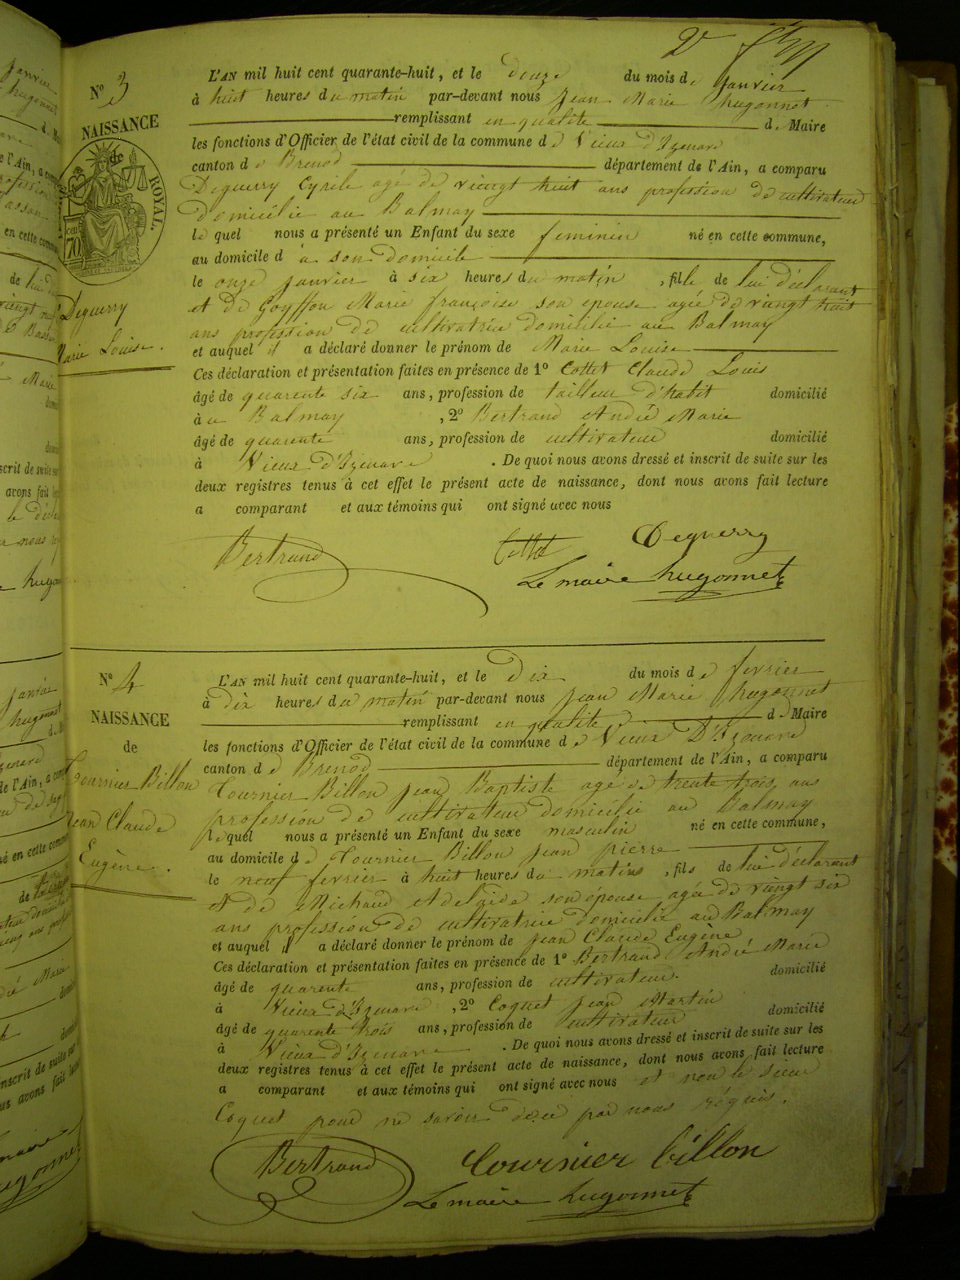 2e
N° 3
NAISSANCE
de
ROYAL.
cent
70
Deguerry
Marie Louise.
L'AN mil huit cent quarante-huit, et le douze du mois de janvier
à huit heures du matin par-devant nous Jean Marie hugonnet
remplissant en qualité de Maire
les fonctions d'Officier de l'état civil de la commune de Vieux d'Izenave
canton de Brenod département de l'Ain, a comparu
Deguerry Cyrile agé de vieingt huit ans profession de cultivateur
domicilié au Balmay
le quel nous a présenté un Enfant du sexe feminin né en cette commune,
au domicile d à son domicile
le onze janvier à six heures du matin, fille de lui déclarant
et de Goyffon Marie françoise son épouse agée de vuingt huit
ans profession de cultivatrice domicilié au Balmay
et auquel il a déclaré donner le prénom de Marie Louise
Ces déclaration et présentation faites en présence de 1° Cottet Claude Louis
âgé de quarente six ans, profession de tailleur d'habit domicilié
à u Balmay, 2° Bertrand André Marie
âgé de quarente ans, profession de cultivateur domicilié
à Vieux d'Izenave. De quoi nous avons dressé et inscrit de suite sur les
deux registres tenus à cet effet le présent acte de naissance, dont nous avons fait lecture
a comparant et aux témoins qui ont signé avec nous
Bertrand Cottet Deguerry
Le maire hugonnet
N° 4
NAISSANCE
de
Tournier Billon
Jean Claude
Eugène.
L'AN mil huit cent quarante-huit, et le dix du mois de fevrier
à dix heures du matin par-devant nous Jean Marie hugonnet
remplissant en qualité de Maire
les fonctions d'Officier de l'état civil de la commune de Vieux D'Izenave
canton de Brenod département de l'Ain, a comparu
Tournier Billon Jean Baptiste agé de trente trois ans
profession de cultivateur domicilié au Balmay
lequel nous a présenté un Enfant du sexe masculin né en cette commune,
au domicile de Tournier Billon Jean pierre
le neuf fevrier à huit heures du matin, fils de lui déclarant
et de Michaud Adelaide son épouse agée de vuingt six
ans profession de cultivatrice domicilié au Balmay
et auquel il a déclaré donner le prénom de Jean Claude Eugène
Ces déclaration et présentation faites en présence de 1° Bertrand André Marie
âgé de quarente ans, profession de cultivateur. domicilié
à Vieux d'Izenave, 2° Coquet Jean Martin
âgé de quarente trois ans, profession de cultivateur domicilié
à Vieux d'Izenave. De quoi nous avons dressé et inscrit de suite sur les
deux registres tenus à cet effet le présent acte de naissance, dont nous avons fait lecture
a comparant et aux témoins qui ont signé avec nous et non le sieur
Coquet pour ne savoir de ce par nous réquis.
Bertrand Tournier billon
Le maire hugonnet